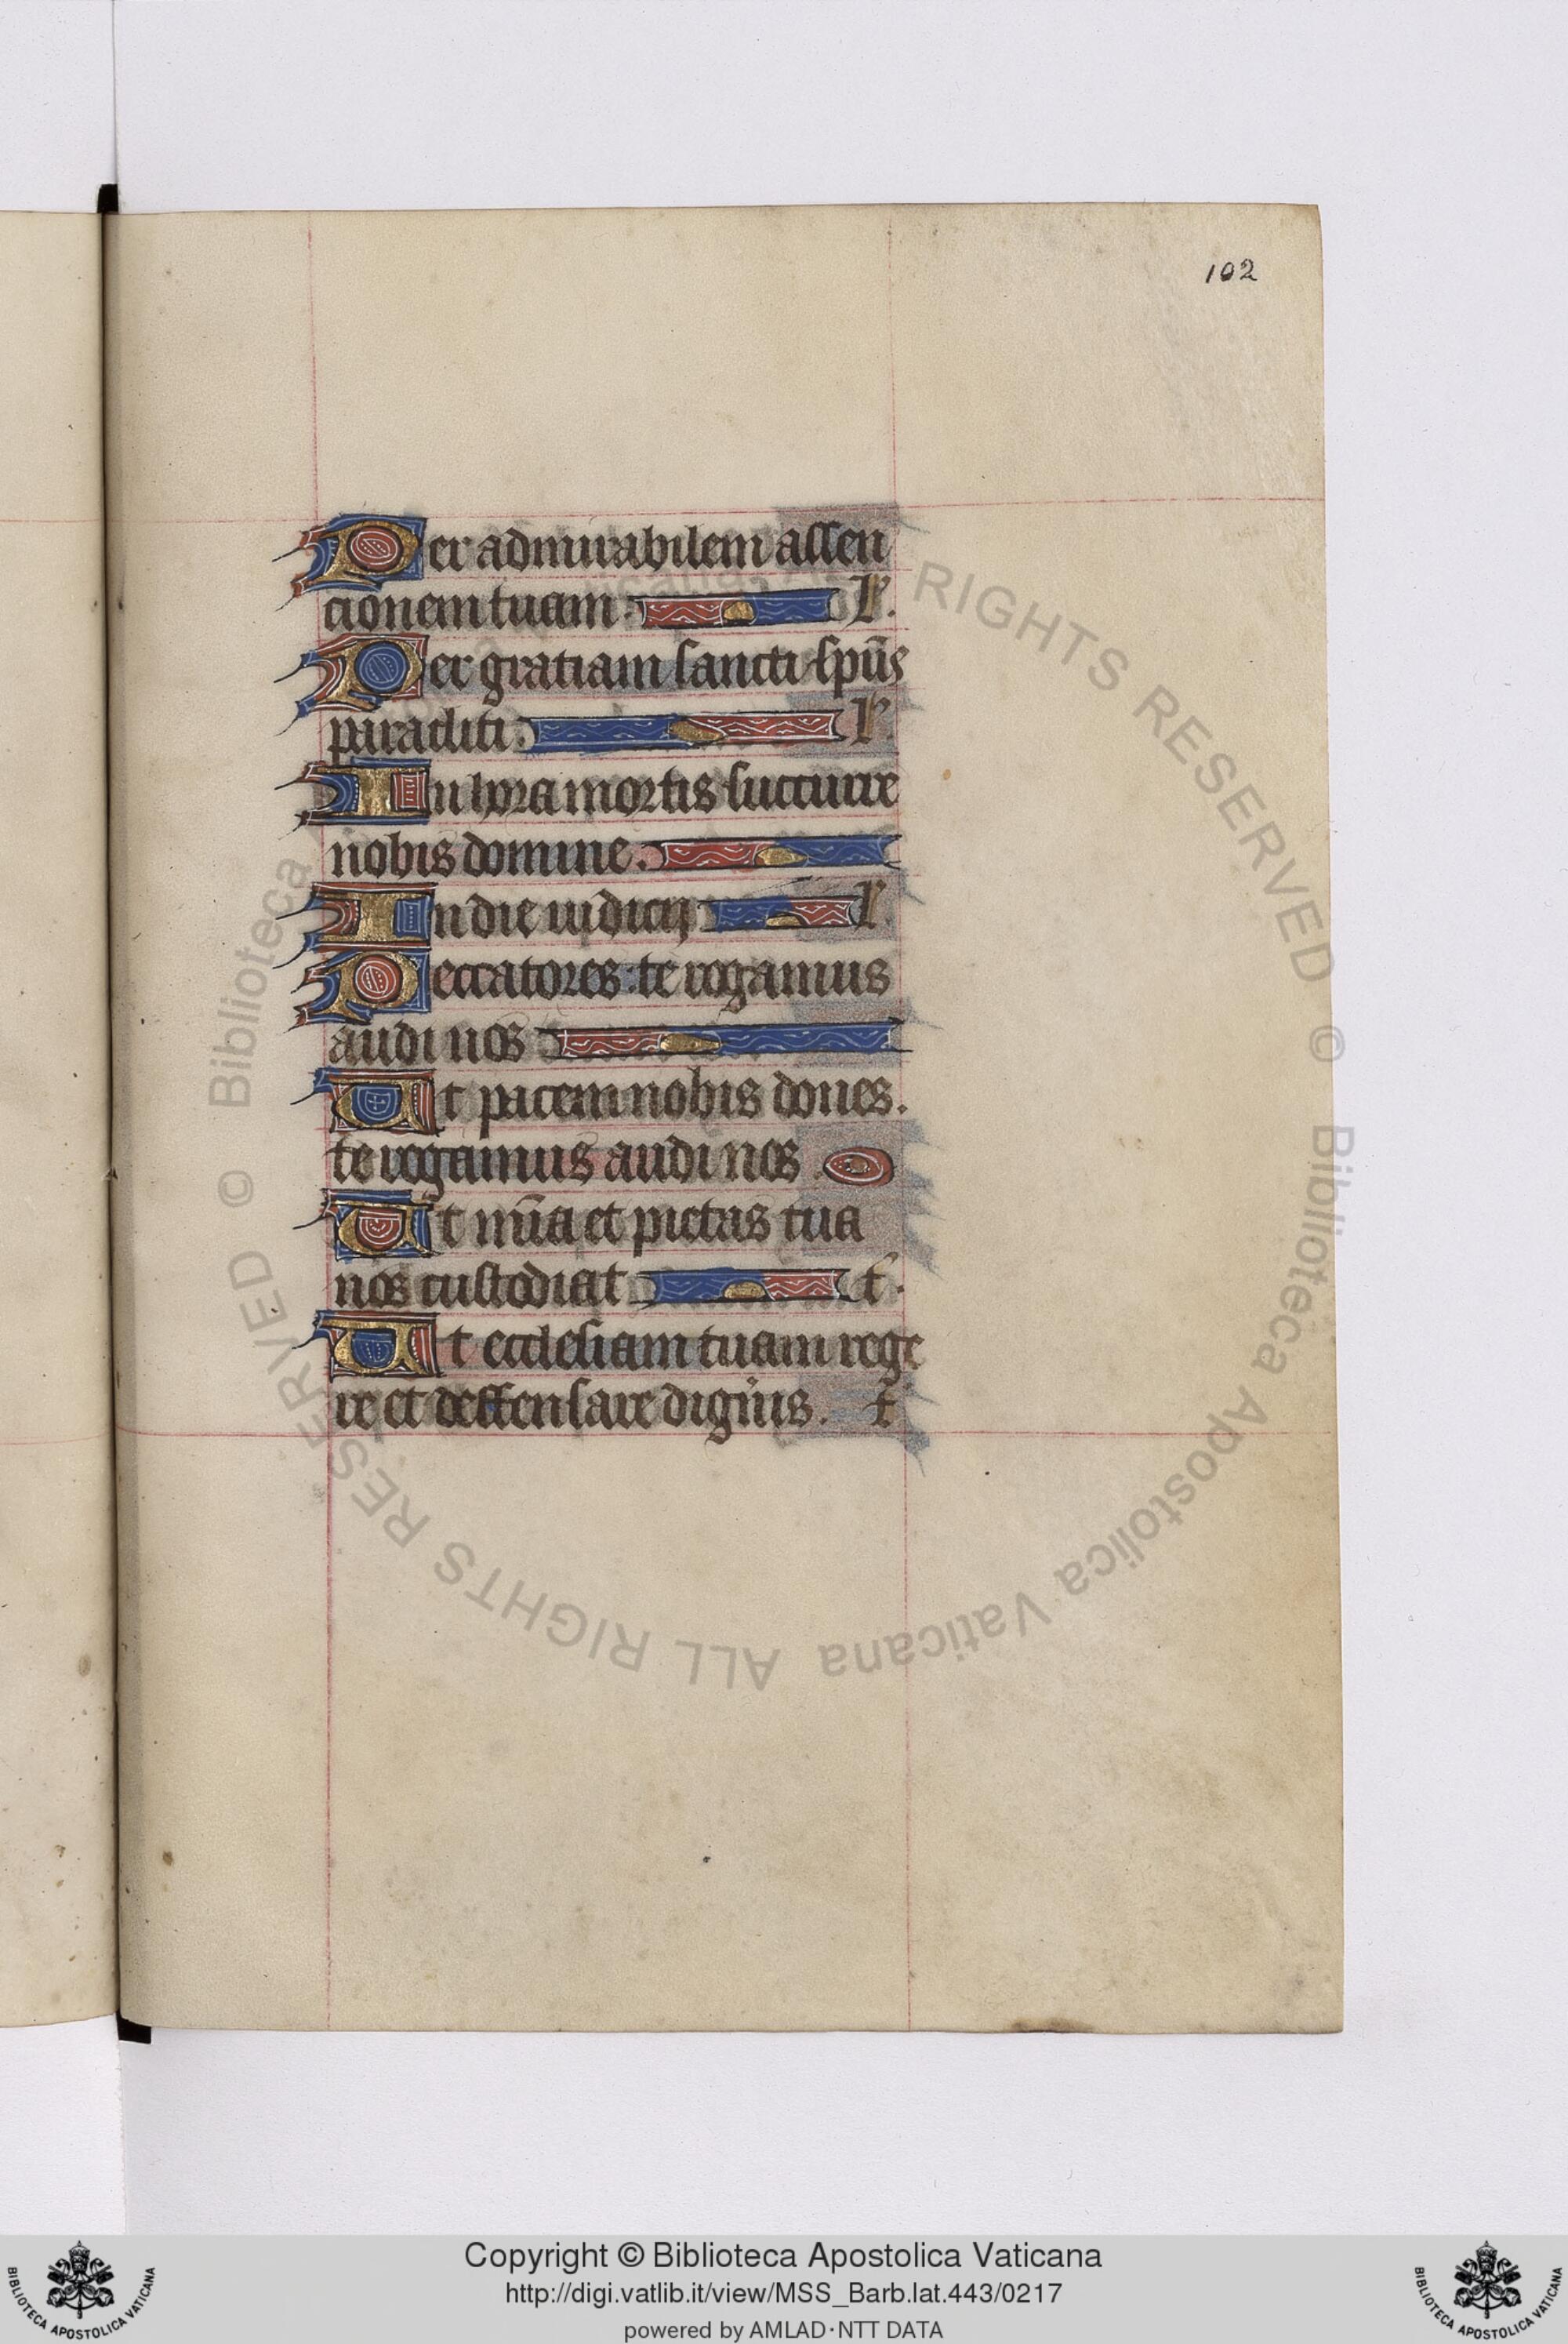 102
Per admirabilem assen
cionem tuam. l'.
Per gratiam sancti spūs
paracliti. l'.
In hora mortis succurre
nobis domine.
In die iudicij l'.
Peccatores: te rogamus
audi nos
Ut pacem nobis dones.
te rogamus audi nos.
Ut mīa et pietas tua
nos custodiat t'.
Ut ecclesiam tuam rege
re et deffensare dignīs. t'
© Biblioteca Apostolica Vaticana ALL RIGHTS RESERVED
Copyright © Biblioteca Apostolica Vaticana
http://digi.vatlib.it/view/MSS_Barb.lat.443/0217
powered by AMLAD·NTT DATA
BIBLIOTECA APOSTOLICA VATICANA
BIBLIOTECA APOSTOLICA VATICANA